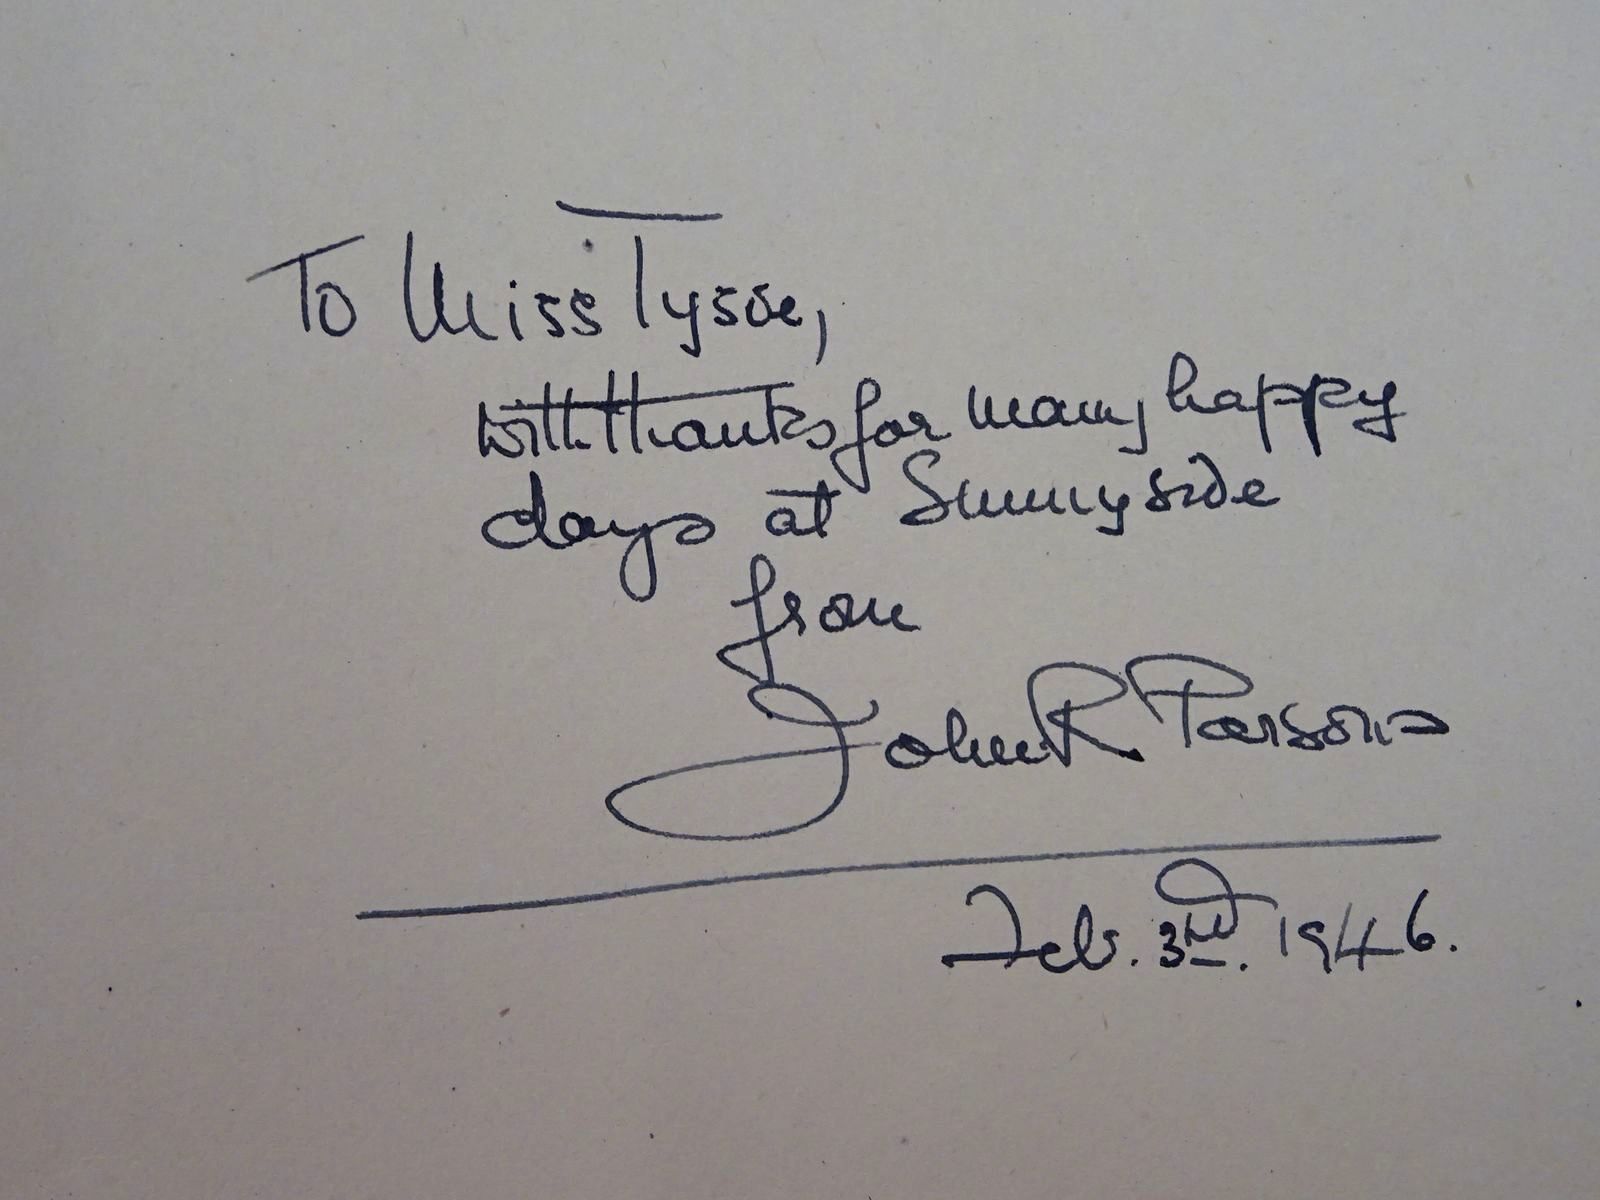 To Miss Tysoe,
with thanks for many happy
days at Sunnyside
from
John R Parsons
Feb. 3rd. 1946.